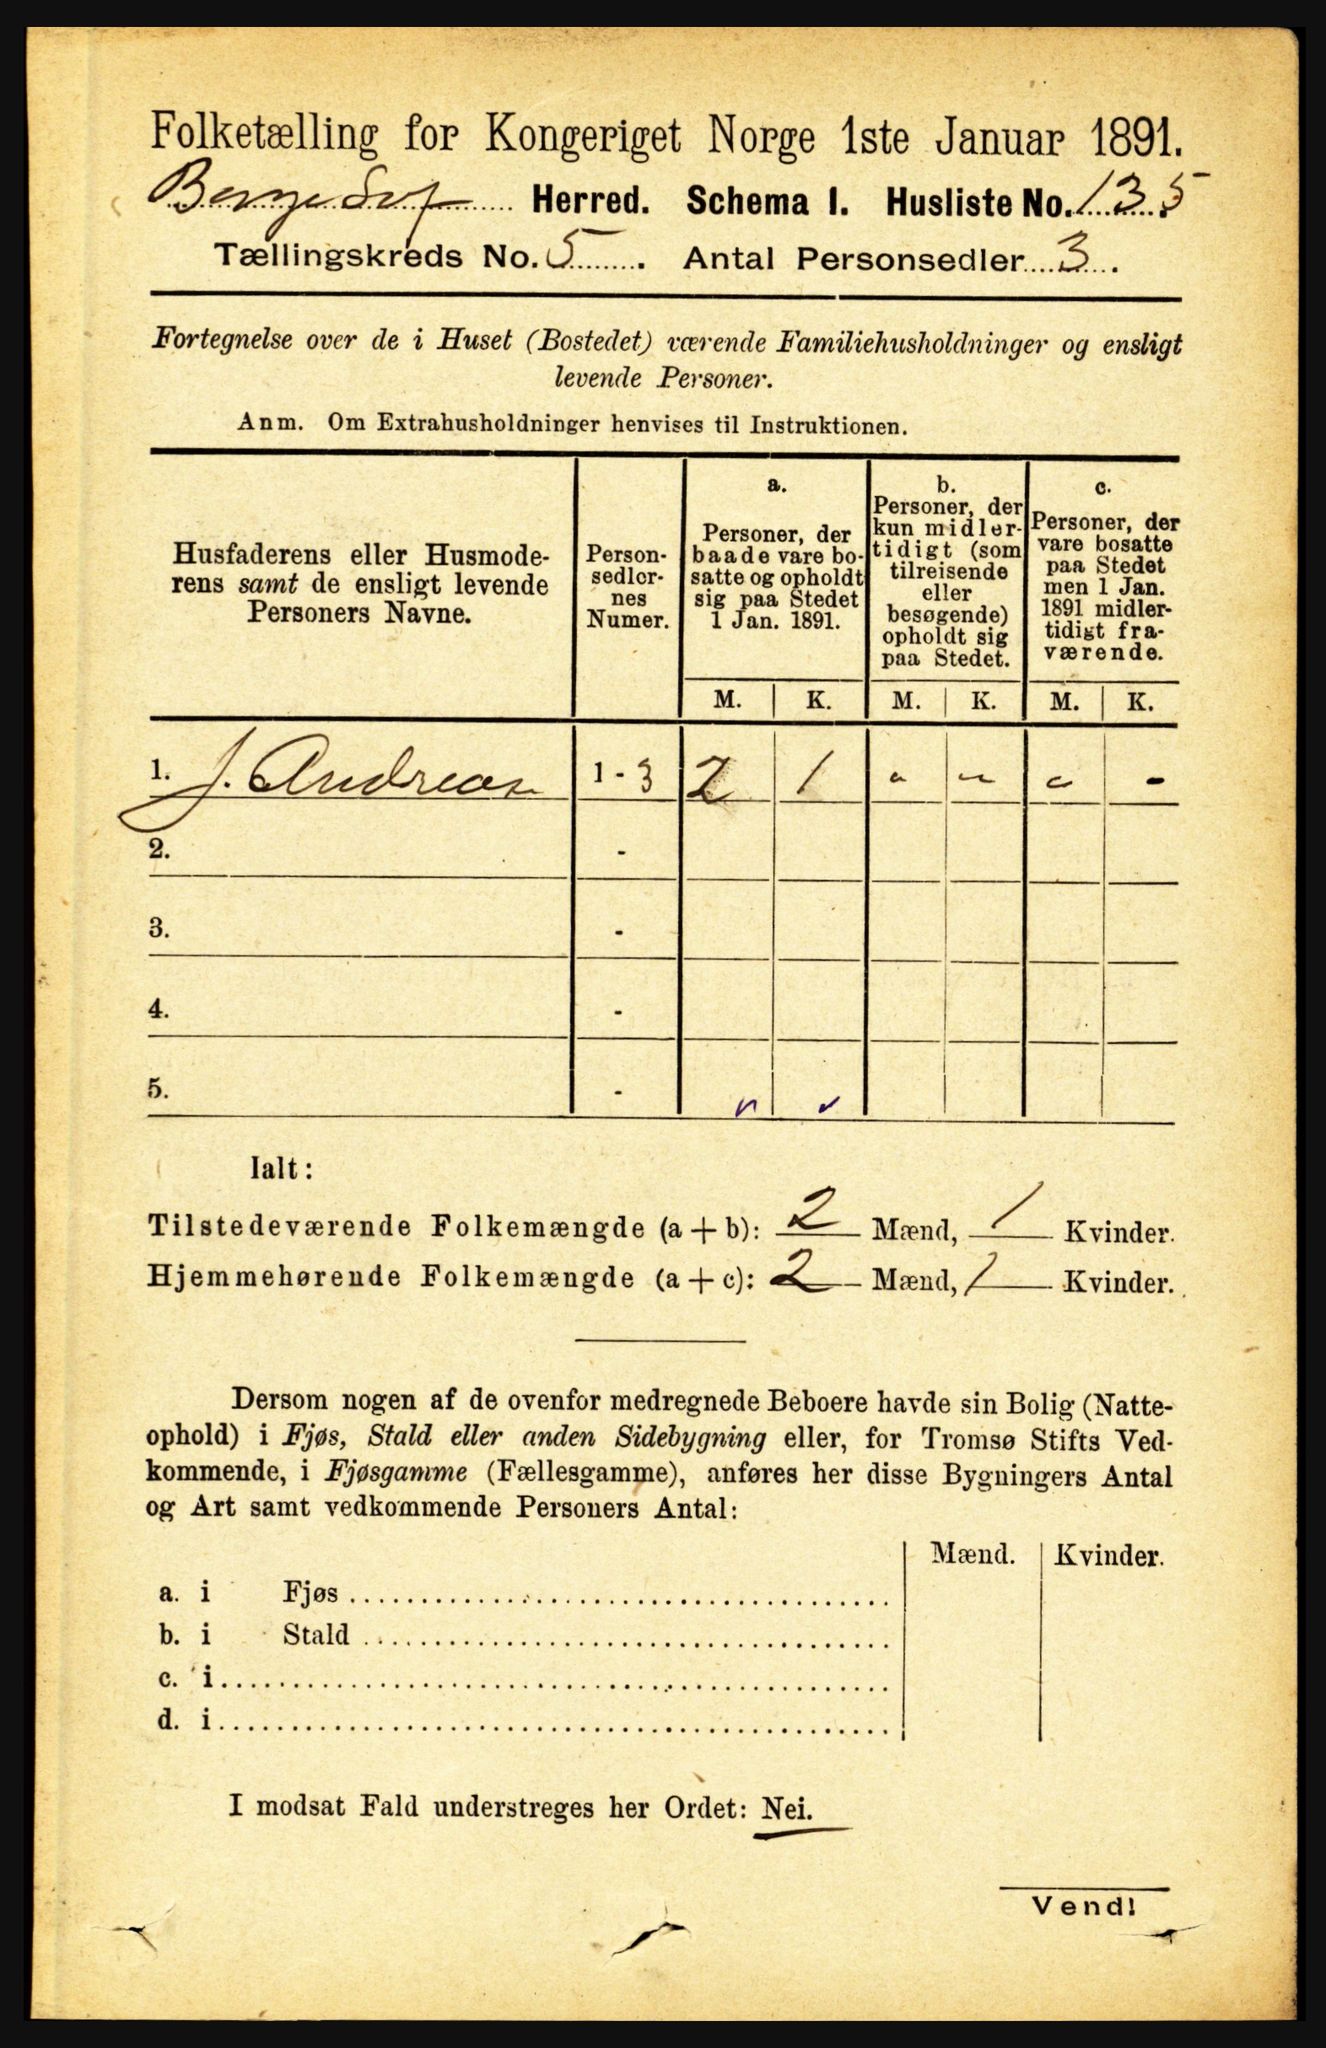 Folketælling for Kongeriget Norge 1ste Januar 1891.
Herred. Schema I. Husliste No. 135
Tællingskreds No. 5. Antal Personsedler 3.
Fortegnelse over de i Huset (Bostedet) værende Familiehusholdninger og ensligt
levende Personer.
Anm. Om Extrahusholdninger henvises til Instruktionen.
Husfaderens eller Husmode-
rens samt de ensligt levende
Personers Navne.
Person-
sedler-
nes
Numer.
a.
Personer, der
baade vare bo-
satte og opholdt
sig paa Stedet
1 Jan. 1891.
b.
Personer, der
kun midler-
tidigt (som
tilreisende
eller
besøgende)
opholdt sig
paa Stedet.
c.
Personer, der
vare bosatte
paa Stedet
men 1 Jan.
1891 midler-
tidigt fra-
værende.
M. K. M. K. M. K.
1. J. Andreas 1 - 3 2 1 " " " -
2. -
3. -
4. -
5. -
Ialt:
Tilstedeværende Folkemængde (a + b): 2 Mænd, 1 Kvinder.
Hjemmehørende Folkemængde (a + c): 2 Mænd, 1 Kvinder.
Dersom nogen af de ovenfor medregnede Beboere havde sin Bolig (Natte-
ophold) i Fjøs, Stald eller anden Sidebygning eller, for Tromsø Stifts Ved-
kommende, i Fjøsgamme (Fællesgamme), anføres her disse Bygningers Antal
og Art samt vedkommende Personers Antal:
Mænd. Kvinder.
a. i Fjøs
b. i Stald
c. i
d. i
I modsat Fald understreges her Ordet: Nei.
Vend!